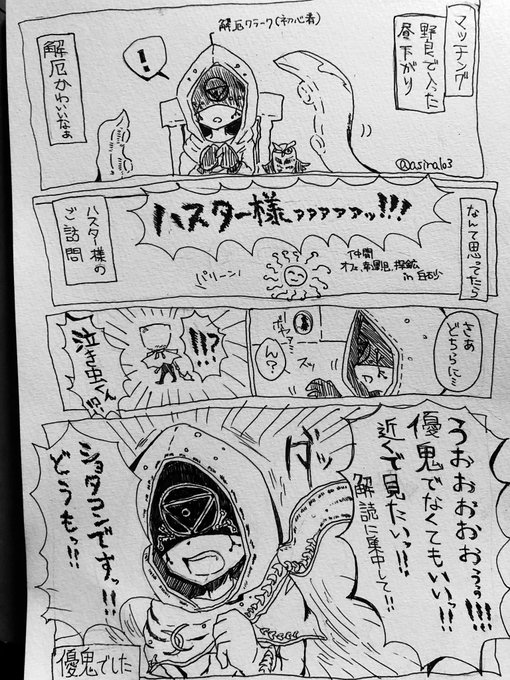 マッチング
野良で入った
昼下がり
解厄クラーク(初心者)
!
解厄かわいいなぁ
@asiralo3
なんて思ってたら
ハスター様ァァァァァッ!!!
仲間
in 白砂
パリーン!
ハスター様の
ご訪問
さぁ
どちらに…
スッ
ん?
!!!?
泣き虫くん!?
うおおおおおぅぅ!!!!
優鬼でなくてもいいッ!!
近くで見たいッ!!
解読に集中して!!
ダッ
ショタコンですッ!!
どうもっ!!
優鬼でした